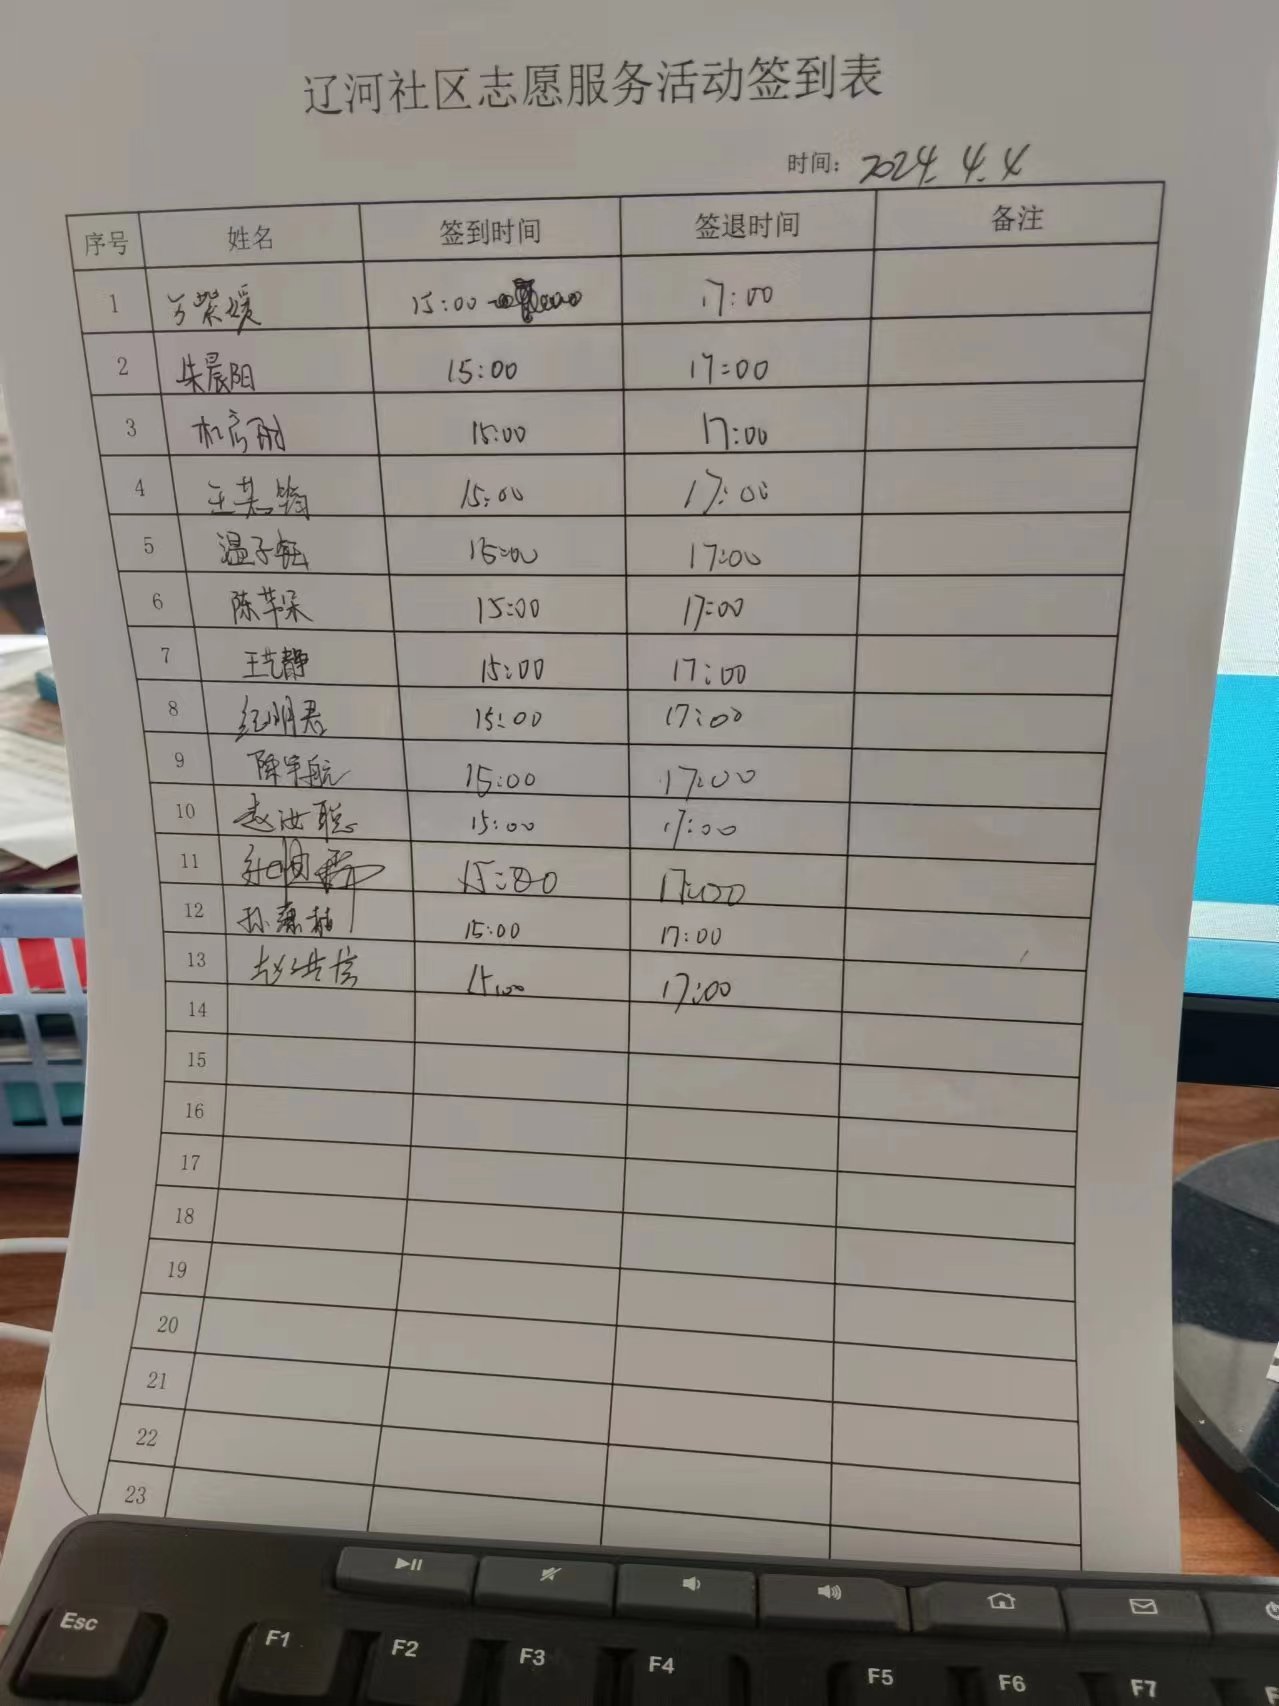 辽河社区志愿服务活动签到表
时间: 2024.4.4
序号 姓名 签到时间 签退时间 备注
1 紫媛 15:00 17:00
2 朱晨阳 15:00 17:00
3 15:00 17:00
4 王 15:00 17:00
5 温子钰 15:00 17:00
6 陈苹 15:00 17:00
7 王艺静 15:00 17:00
8 纪明君 15:00 17:00
9 陈宇航 15:00 17:00
10 赵汝聪 15:00 17:00
11 15:00 17:00
12 孙 15:00 17:00
13 赵 15:00 17:00
14
15
16
17
18
19
20
21
22
23
Esc F1 F2 F3 F4 F5 F6 F7